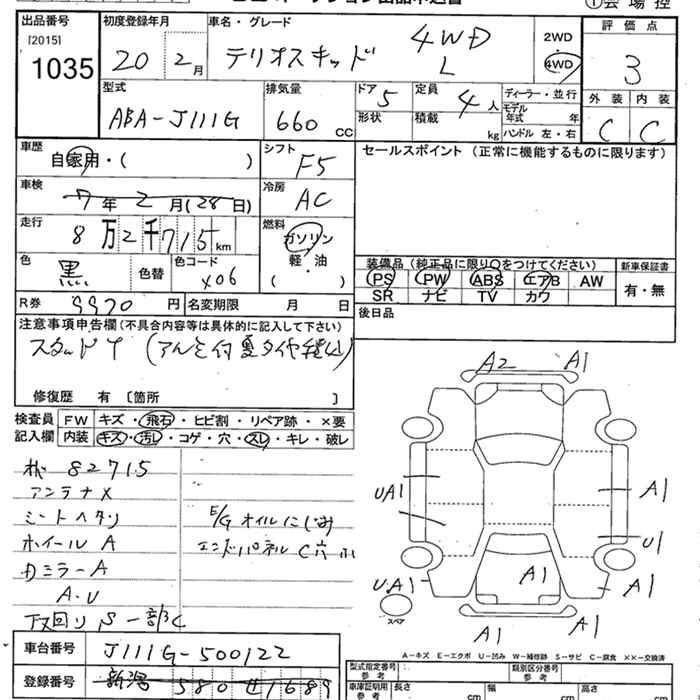 出品番号
[2015]
1035
初度登録年月
20 2月
車名・グレード
テリオスキッド 4WD L
2WD
4WD
①会場控
評価点
3
外装 内装
C C
型式
ABA-J111G
排気量
660 CC
ドア
5
形状
定員
4人
積載
kg
ディーラー・並行
モデル年式 年
ハンドル 左・右
車歴
自家用・( )
シフト
F5
セールスポイント(正常に機能するものに限ります)
車検
7年2月(28日)
冷房
AC
走行
8万2千715km
燃料
ガソリン
軽・油
( )
色
黒
色替
色コード
X06
装備品(純正品に限り○をつけてください)
PS PW ABS エアB AW
SR ナビ TV カワ
新車保証書
有・無
R券
9970円
名変期限 月 日
後日品
注意事項申告欄(不具合内容等は具体的に記入して下さい)
修復歴 有 [箇所 ]
検査員記入欄
FW キズ・飛石・ヒビ割・リペア跡・×要
内装 キズ・汚レ・コゲ・穴・スレ・キレ・破レ
82715
アンテナX
シートヘタリ
ホイールA
E/Gオイルにじみ
エンドパネルC穴
Dミラー A
A・U
下回りS一部C
A2 A1
UA1 A1
U1
U・A1 A1 A1
スペア
A1 A1
A-キズ E-エクボ U-凹み W-補修跡 S-サビ C-腐食 ××-交換済
車台番号
J111G-500122
登録番号
新潟 580 せ1689
型式指定番号 参考
類別区分番号 参考
車庫証明用 参考
長さ cm
幅 cm
高さ cm